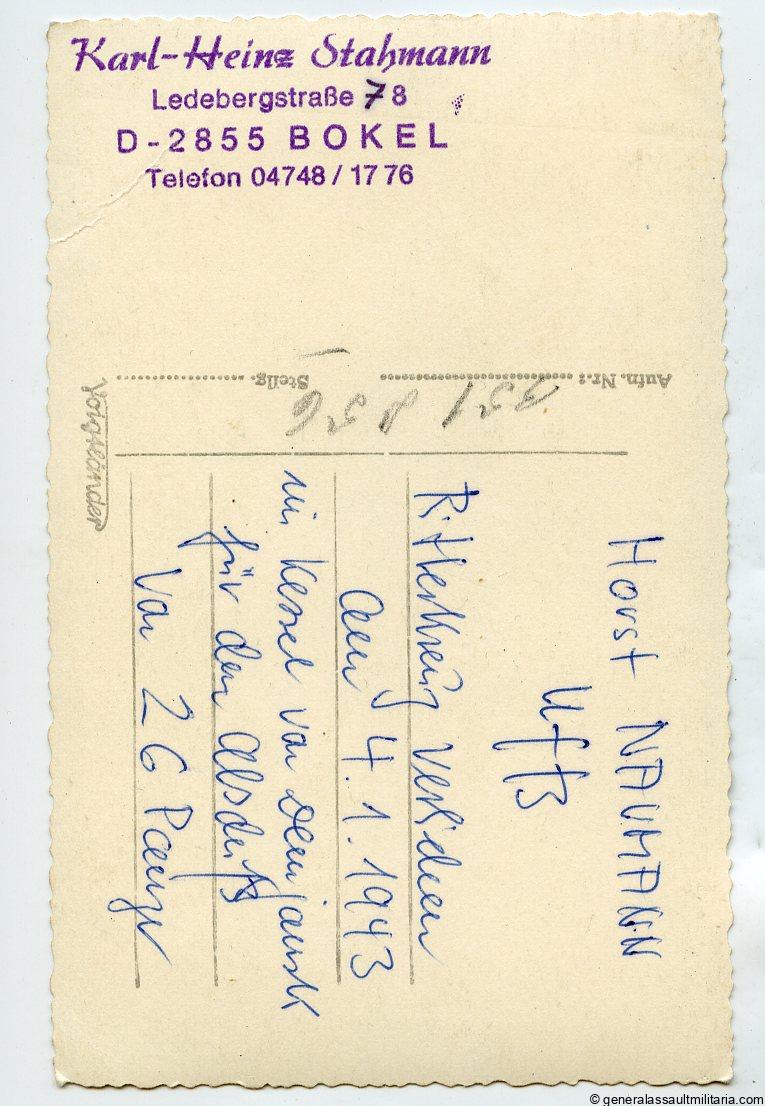 Karl-Heinz Stahmann
Ledebergstraße 78
D-2855 BOKEL
Telefon 04748 / 17 76
Aufn. Nr.: Stellg.
Voigtländer
Horst NAUMANN
Uffz
Ritterkreuz Verliehen
am 4.1.1943
im Kessel von Demjansk
für den Abschuß
von 26 Panzer
© generalassaultmilitaria.com